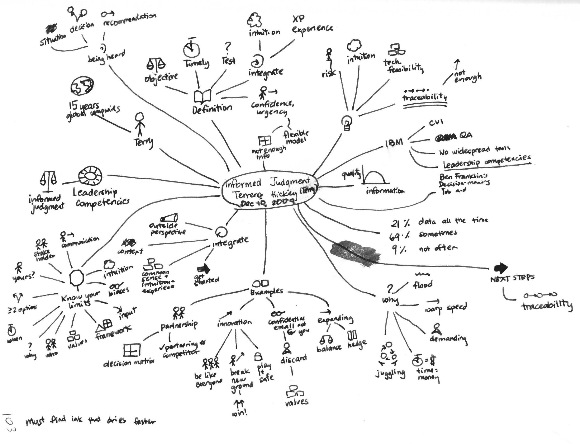 situation
decision
recommendation
being heard
objective
Timely
? Test
intuition
XP
experience
integrate
Definition
confidence,
urgency
flexible
model
not enough
info
risk
intuition
tech
feasibility
not
enough
traceability
15 years
Terry
IBM
CVI
QA
No widespread tools
Leadership competencies
Ben Franklin's
Decision-making
Tool aid
quality
information
informed
judgment
Leadership
competencies
Informed Judgment
Dec 10, 2009
21% data all the time
69% sometimes
9% not often
NEXT STEPS
traceability
outside
perspective
context
integrate
common
sense +
intuition +
experience
get
started
stake
holder
communication
yours?
intuition
biases
Know your
limits
?? options
input
framework
when
?
why
who
values
Examples
Partnership
decision matrix
partnering w/
competitor
innovation
be like
everyone
break
new
ground
win!
play
it
safe
confidential
email not
for you
discard
values
expanding
balance
hedge
?
why
flood
warp speed
demanding
juggling
time=
money
Must find ink that dries faster